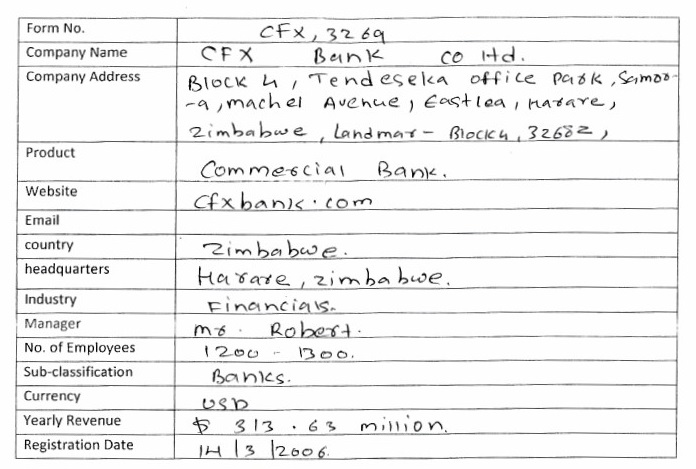 Form No. CFX, 3269
Company Name CFX Bank co ltd.
Company Address Block 4, Tendeseka office Park, Samor-
-a, machel Avenue, Eastlea, Harare,
Zimbabwe, Landmar- Block4, 32682,
Product Commercial Bank.
Website Cfxbank.com
Email
country Zimbabwe.
headquarters Harare, zimbabwe.
Industry Financials.
Manager mr. Robert.
No. of Employees 1200 - 1300.
Sub-classification Banks.
Currency USD
Yearly Revenue $ 313.63 million.
Registration Date 14/3/2006.